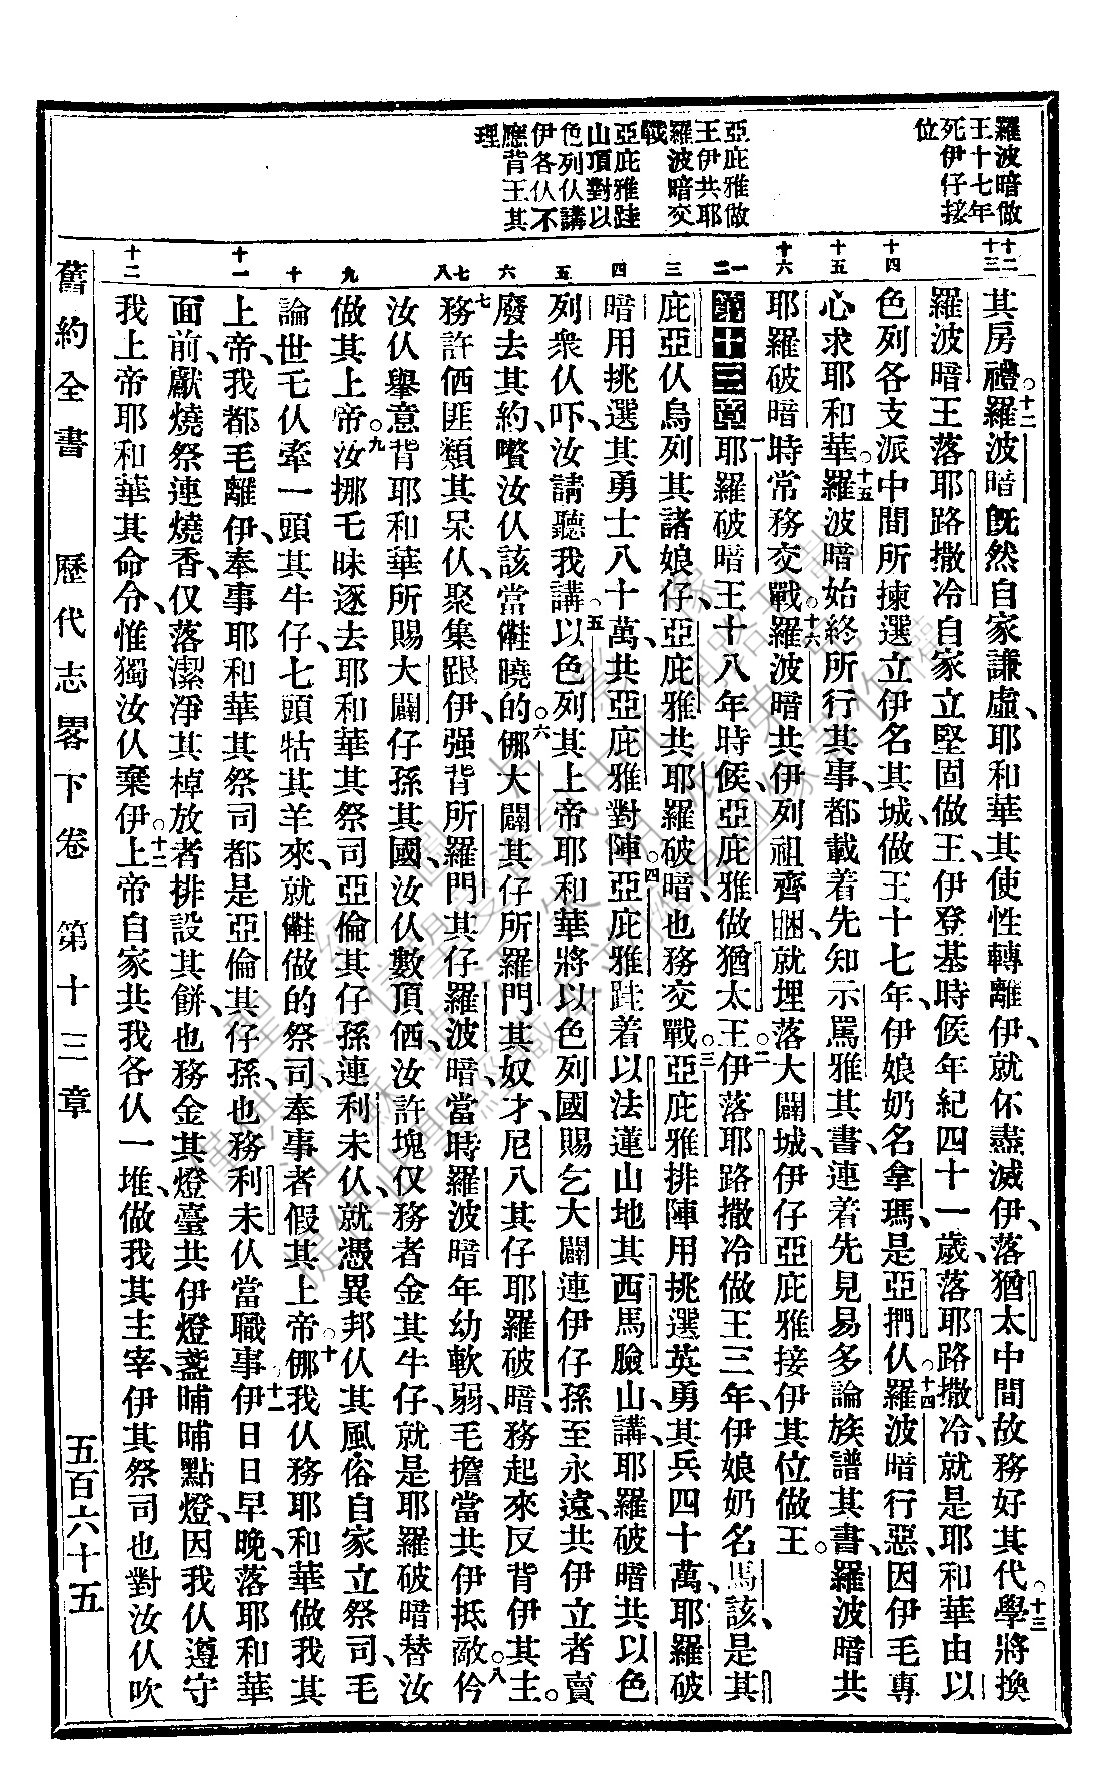 羅波暗做
王十七年
死伊仔接
位
亞庇雅做
王伊共耶
羅波暗交
戰
亞庇雅𨂿
山頂對以
色列仈講
伊各仈不
應背王其
理
十二 十三 十四 十五 十六 一 二 三 四 五 六 七 八 九 十 十一 十二
其房禮。十二羅波暗旣然自家謙虛、耶和華其使性轉離伊、就伓盡滅伊、落猶太中間故務好其代。十三學將換
羅波暗王落耶路撒冷自家立堅固做王、伊登基時候年紀四十一歲、落耶路撒冷、就是耶和華由以
色列各支派中間所揀選立伊名其城、做王十七年、伊娘奶名拿瑪、是亞捫仈。十四羅波暗行惡、因伊毛專
心求耶和華。十五羅波暗始終所行其事、都載着先知示罵雅其書、連着先見易多論族譜其書、羅波暗共
耶羅破暗時常務交戰。十六羅波暗共伊列祖齊睏、就埋落大闢城、伊仔亞庇雅接伊其位做王。
第十三章一耶羅破暗王十八年時候、亞庇雅做猶太王。二伊落耶路撒冷做王三年、伊娘奶名馬該、是其
庇亞仈烏列其諸娘仔、亞庇雅共耶羅破暗也務交戰。三亞庇雅排陣用挑選英勇其兵四十萬、耶羅破
暗用挑選其勇士八十萬、共亞庇雅對陣。四亞庇雅𨂿着以法蓮山地其西馬臉山、講、耶羅破暗共以色
列衆仈吓、汝請聽我講。五以色列其上帝耶和華、將以色列國賜乞大闢連伊仔孫、至永遠、共伊立者賣
廢去其約、嚽汝仈、該當𣍐曉的。六㑚大闢其仔所羅門其奴才、尼八其仔耶羅破暗、務起來反背伊其主。
七務許𠲥匪類其呆仈、聚集跟伊、强背所羅門其仔羅波暗、當時羅波暗年幼軟弱、毛擔當共伊抵敵。八仱
汝仈舉意背耶和華所賜大闢仔孫其國、汝仈數頂𠲥、汝許塊仅務者金其牛仔、就是耶羅破暗替汝
做其上帝。九汝挪乇昧逐去耶和華其祭司、亞倫其仔孫、連利未仈、就憑異邦仈其風俗自家立祭司、毛
論世乇仈牽一頭其牛仔、七頭牯其羊來、就𣍐做的祭司、奉事者假其上帝。十㑚我仈務耶和華做我其
上帝、我都毛離伊、奉事耶和華其祭司、都是亞倫其仔孫、也務利未仈當職事。十一伊日日早晚、落耶和華
面前、獻燒祭連燒香、仅落潔凈其棹放者排設其餅、也務金其燈臺共伊燈盞、晡晡點燈、因我仈遵守
我上帝耶和華其命令、惟獨汝仈棄伊。十二上帝自家共我各仈一堆、做我其主宰、伊其祭司也對汝仈吹
舊約全書　歷代志畧下卷　第十三章　五百六十五